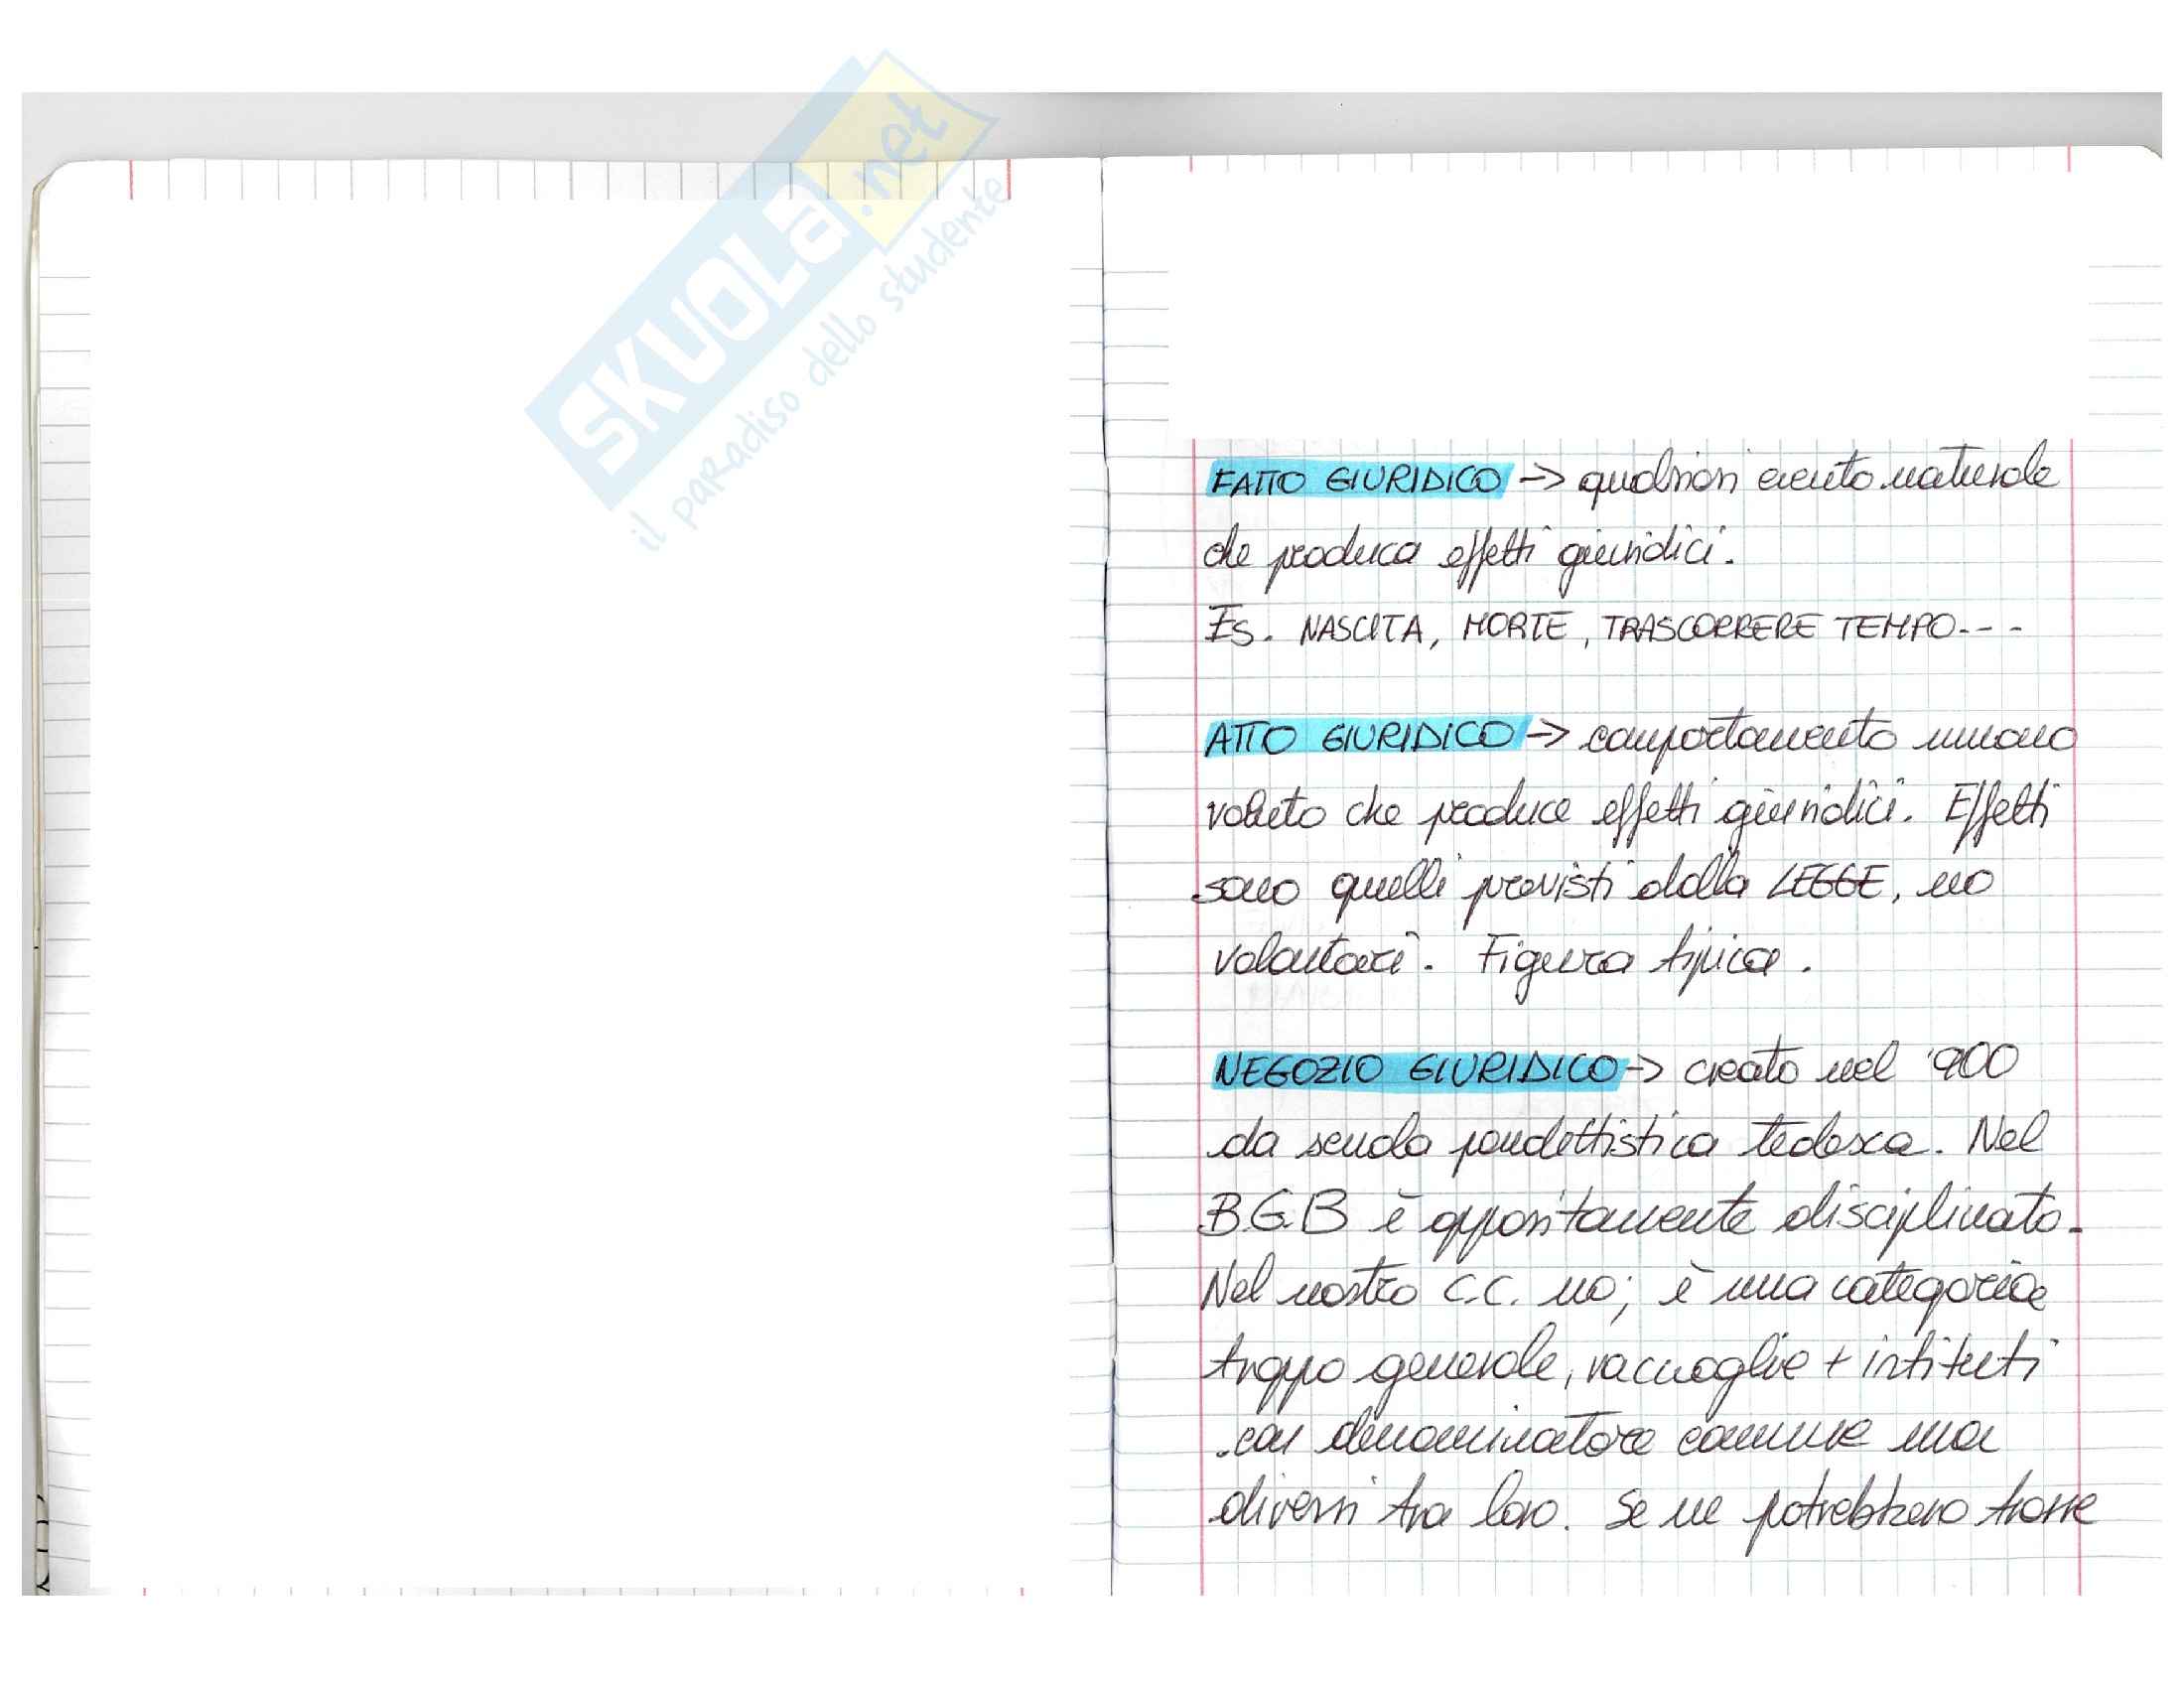 SKUOLA.net
il paradiso dello studente
FATTO GIURIDICO -> qualsiasi evento naturale
che produca effetti giuridici.
Es. NASCITA, MORTE, TRASCORRERE TEMPO---
ATTO GIURIDICO -> comportamento umano
voluto che produce effetti giuridici. Effetti
sono quelli previsti dalla LEGGE, no
volontari. Figura tipica.
NEGOZIO GIURIDICO -> creato nel '900
da scuola pandettistica tedesca. Nel
B.G.B è appositamente disciplinato.
Nel nostro c.c. no; è una categoria
troppo generale, raccoglie + istituti
con denominatore comune ma
diversi tra loro. Se ne potrebbero trarre